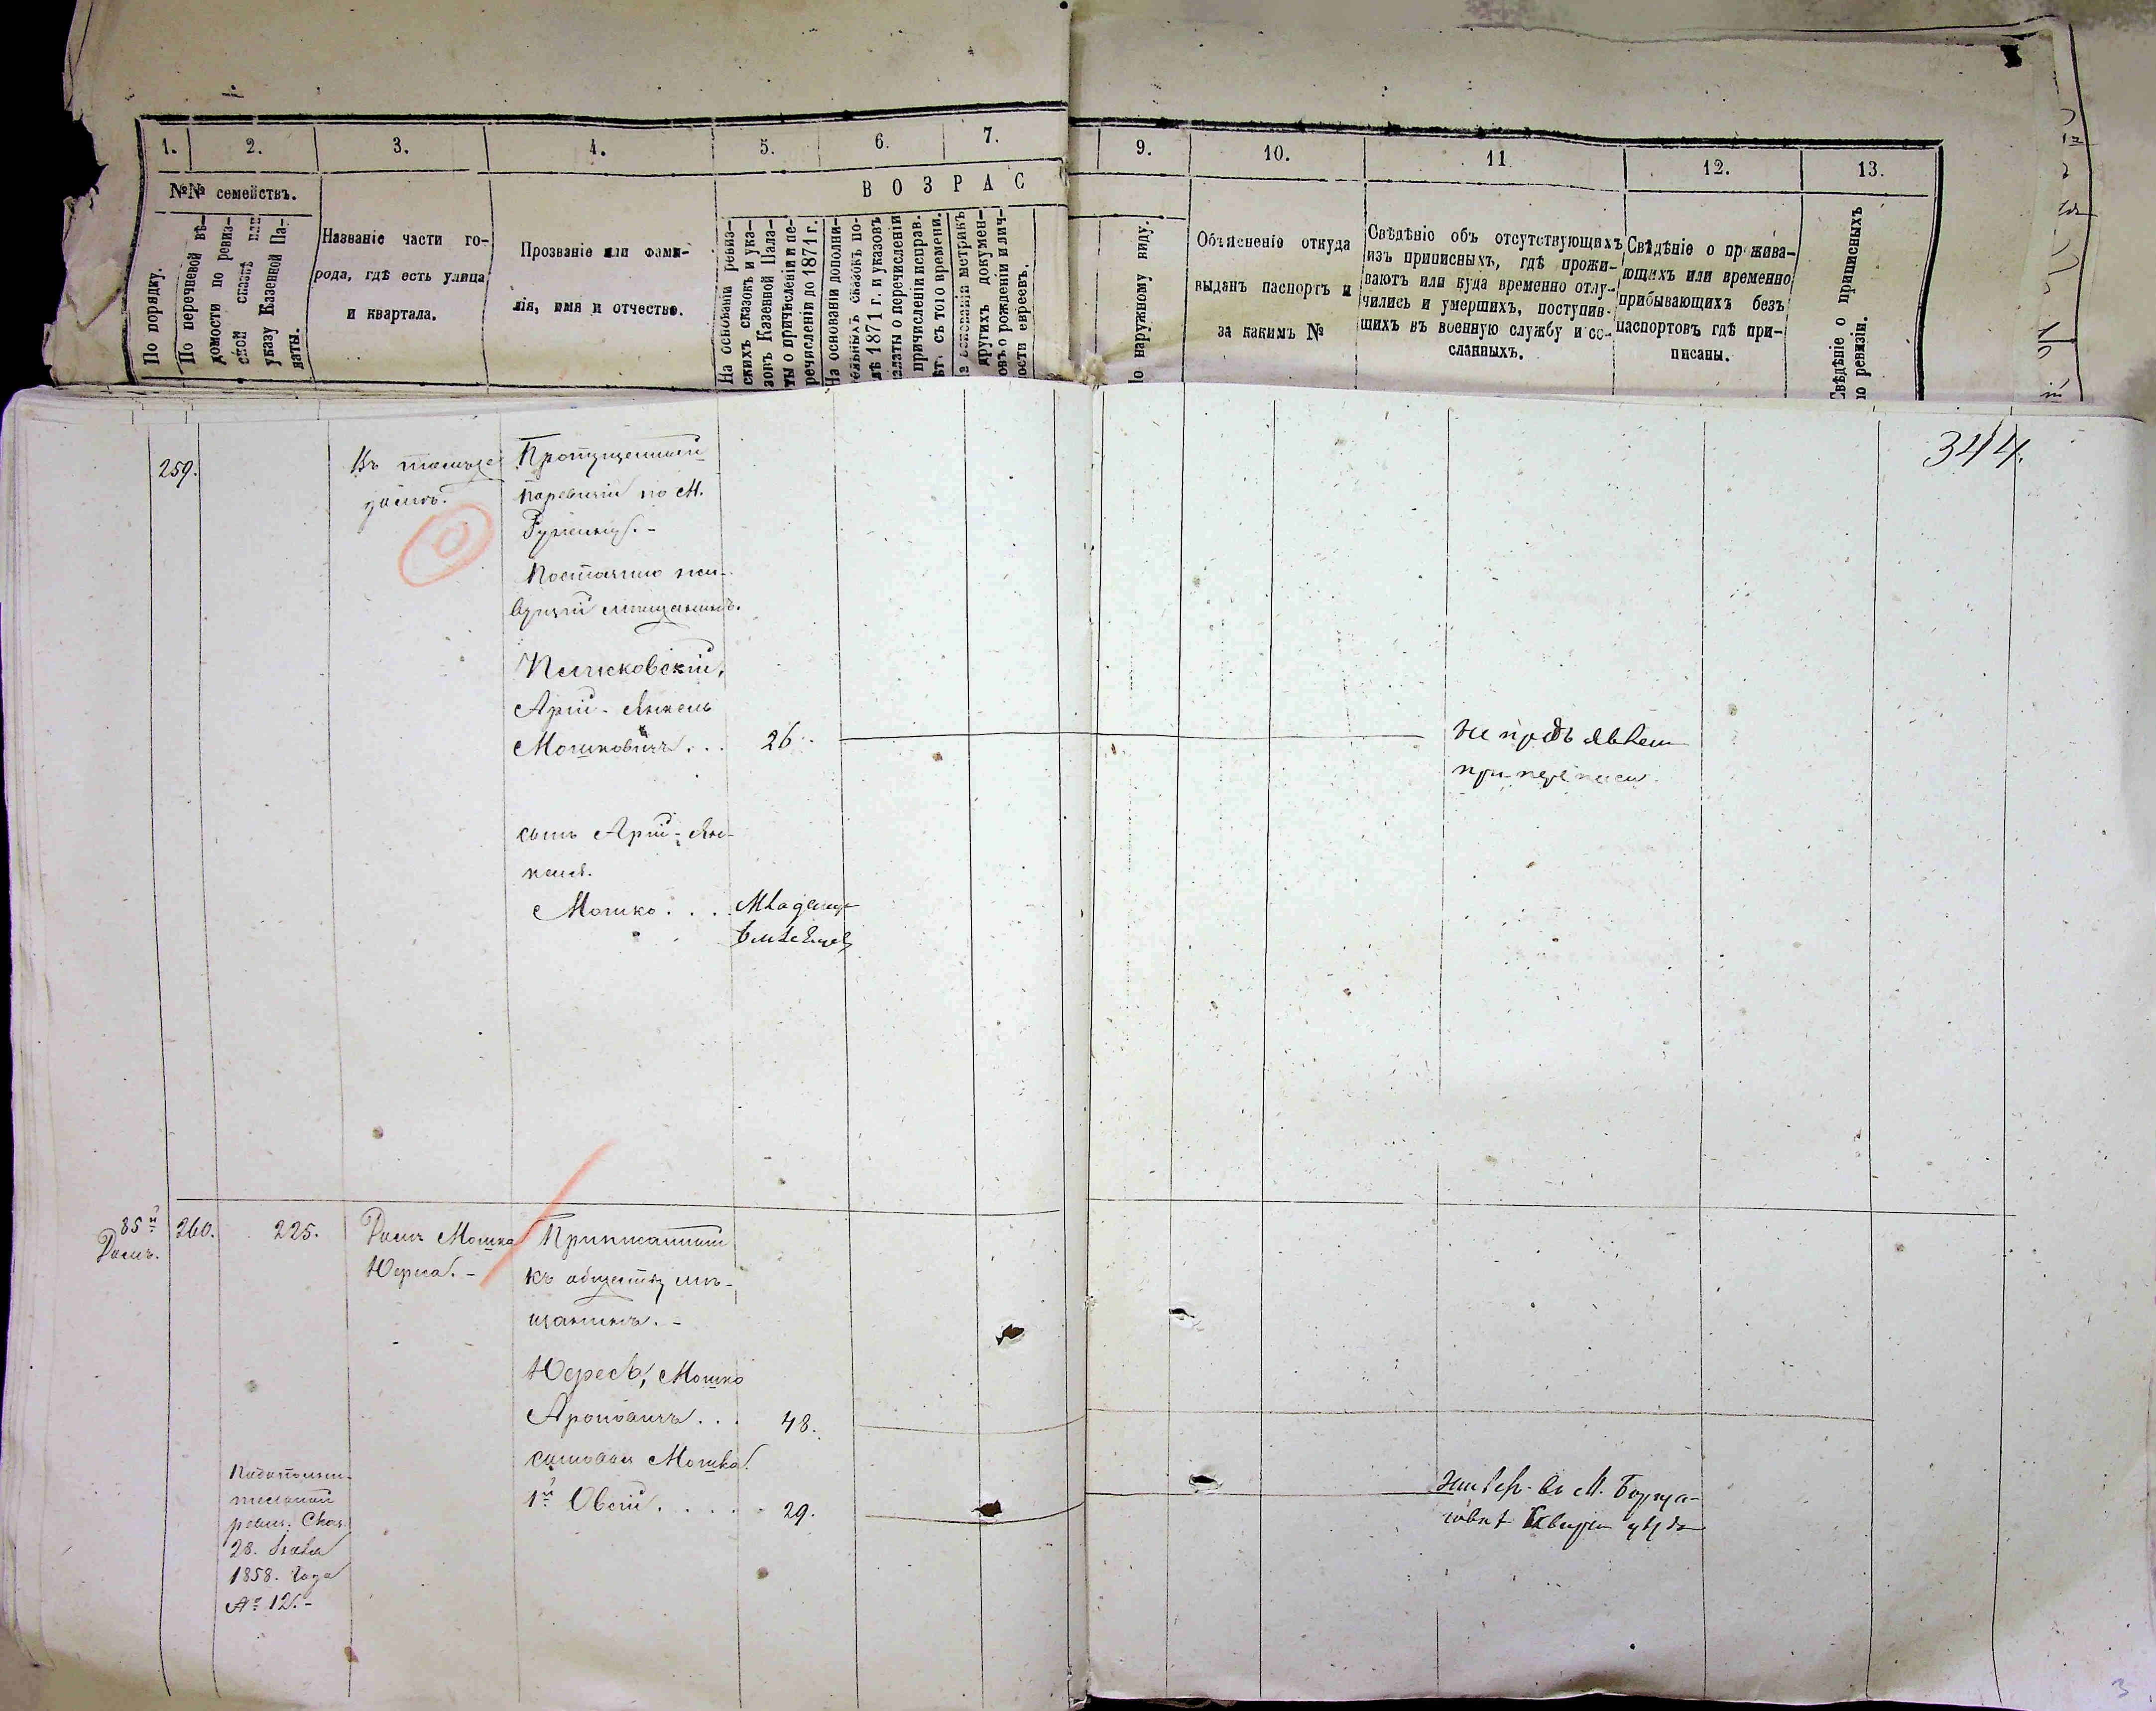 1.
2.
3.
4.
5.
6.
7.
9.
10.
11.
12.
13.
№№ семействъ.
По порядку.
По перечневой вѣ-
домости по ревиз-
ской сказкѣ или
указу Казенной Па-
латы.
Названіе части го-
рода, гдѣ есть улица
и квартала.
Прозваніе или фами-
лія, имя и отчество.
ВОЗРАС
На основаніи ревиз-
скихъ сказокъ и ука-
зовъ Казенной Пала-
ты о причисленіи и пе-
речисленіи до 1871 г.
На основаніи дополни-
тельныхъ сказокъ по-
слѣ 1871 г. и указовъ
палаты о перечисленіи
причисленіи исправ.
лѣтъ съ того времени.
На основаніи метрикъ
другихъ докумен-
товъ о рожденіи и лич-
ности евреевъ.
По наружному виду.
Объясненіе откуда
выданъ паспортъ и
за какимъ №
Свѣдѣніе объ отсутствующихъ
изъ приписныхъ, гдѣ прожи-
ваютъ или куда временно отлу-
чились и умершихъ, поступив-
шихъ въ военную службу и со-
сланныхъ.
Свѣдѣніе о прожива-
ющихъ или временно
прибывающихъ безъ
паспортовъ гдѣ при-
писаны.
Свѣдѣніе о приписныхъ
по ревизіи.
344.
259.
Въ томъ же
домѣ.
Пропущенный
по ревизіи по М.
Постоянно жи-
вущій мѣщанинъ.
Арій-Янкель
Мошковичъ . . .
26.
не предъявленъ
при переписи.
сынъ Арій-Ян-
келя.
Мошко . . .
Младенецъ
85й
Домъ.
260.
225.
Домъ Мошка
Юреса. -
Приписанный
къ обществу мѣ-
щанинъ. -
Юресъ, Мошко
Ароновичъ . . .
48.
сыновья Мошка.
1й Овсій . . . .
29.
Дополни-
тельной
ревиз. Сказ.
28.
1858. года
№ 12. -
въ М.
3